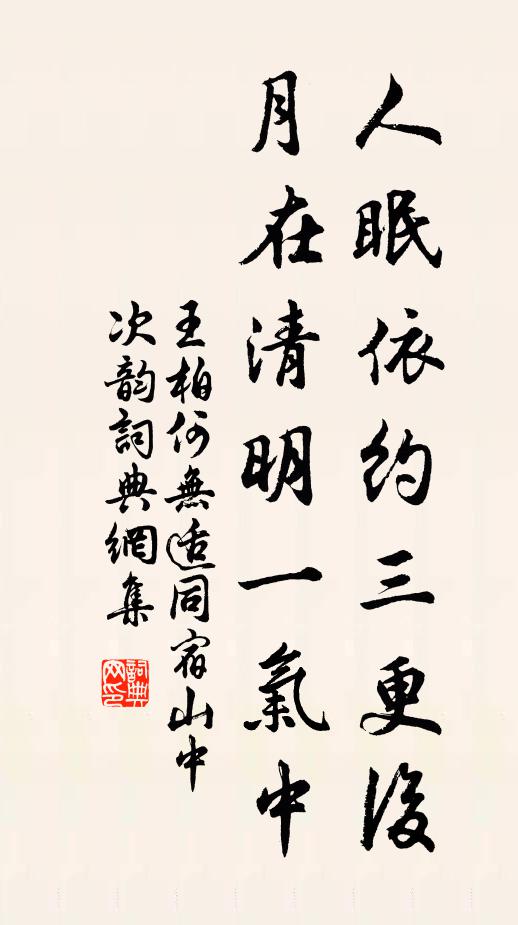 人眠依約三更後
月在清明一氣中
王柏何無適同宿山中
次韵詞典網集
詞典網印